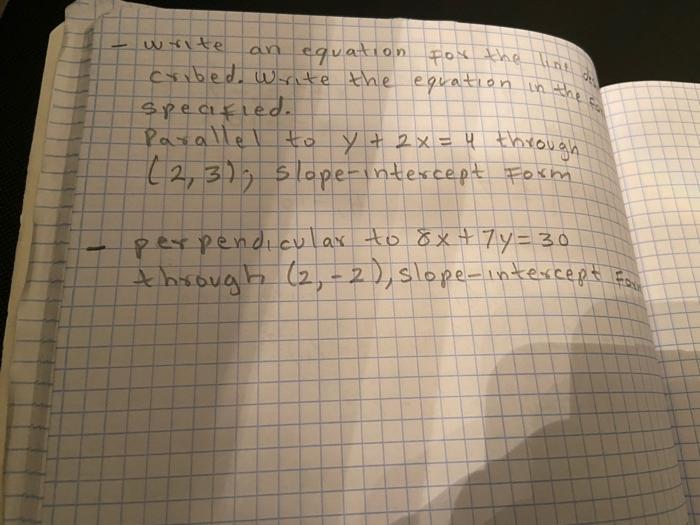 - write an equation for the line des
cribed. Write the equation in the
specified.
Parallel to y + 2x = 4 through
(2,3); slope-intercept Form
- perpendicular to 8x + 7y = 30
through (2,-2), slope-intercept Form